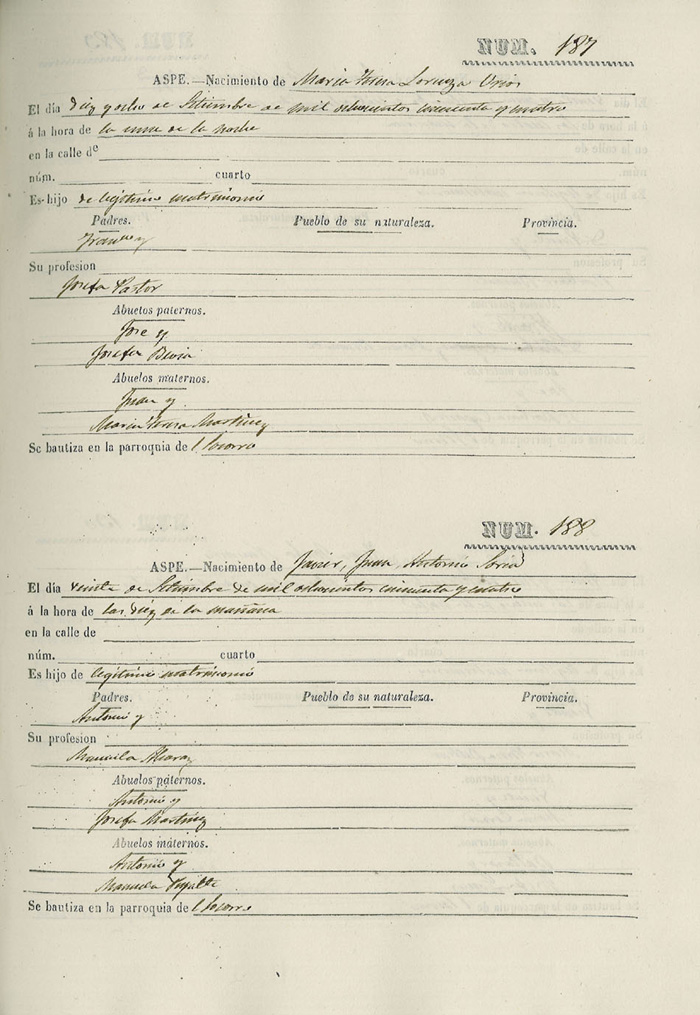 NUM. 187
ASPE.—Nacimiento de Maria Teresa Lorenza Urios
El dia diez y ocho de Setiembre de mil ochocientos cincuenta y cuatro
á la hora de la una de la noche
en la calle de
núm. cuarto
Es hijo de legitimo matrimonio
Padres. Pueblo de su naturaleza. Provincia.
Franco y
Su profesion
Josefa Pastor
Abuelos paternos.
Jose y
Josefa
Abuelos maternos.
Juan y
Maria Teresa Martinez
Se bautiza en la parroquia de l Socorro
NUM. 188
ASPE.—Nacimiento de Javier, Juan, Antonio Soria
El dia veinte de Setiembre de mil ochocientos cincuenta y cuatro
á la hora de las diez de la mañana
en la calle de
núm. cuarto
Es hijo de legitimo matrimonio
Padres. Pueblo de su naturaleza. Provincia.
Antonio y
Su profesion
Manuela Alcaraz
Abuelos paternos.
Antonio y
Josefa Martinez
Abuelos maternos.
Antonio y
Manuela
Se bautiza en la parroquia de l Socorro